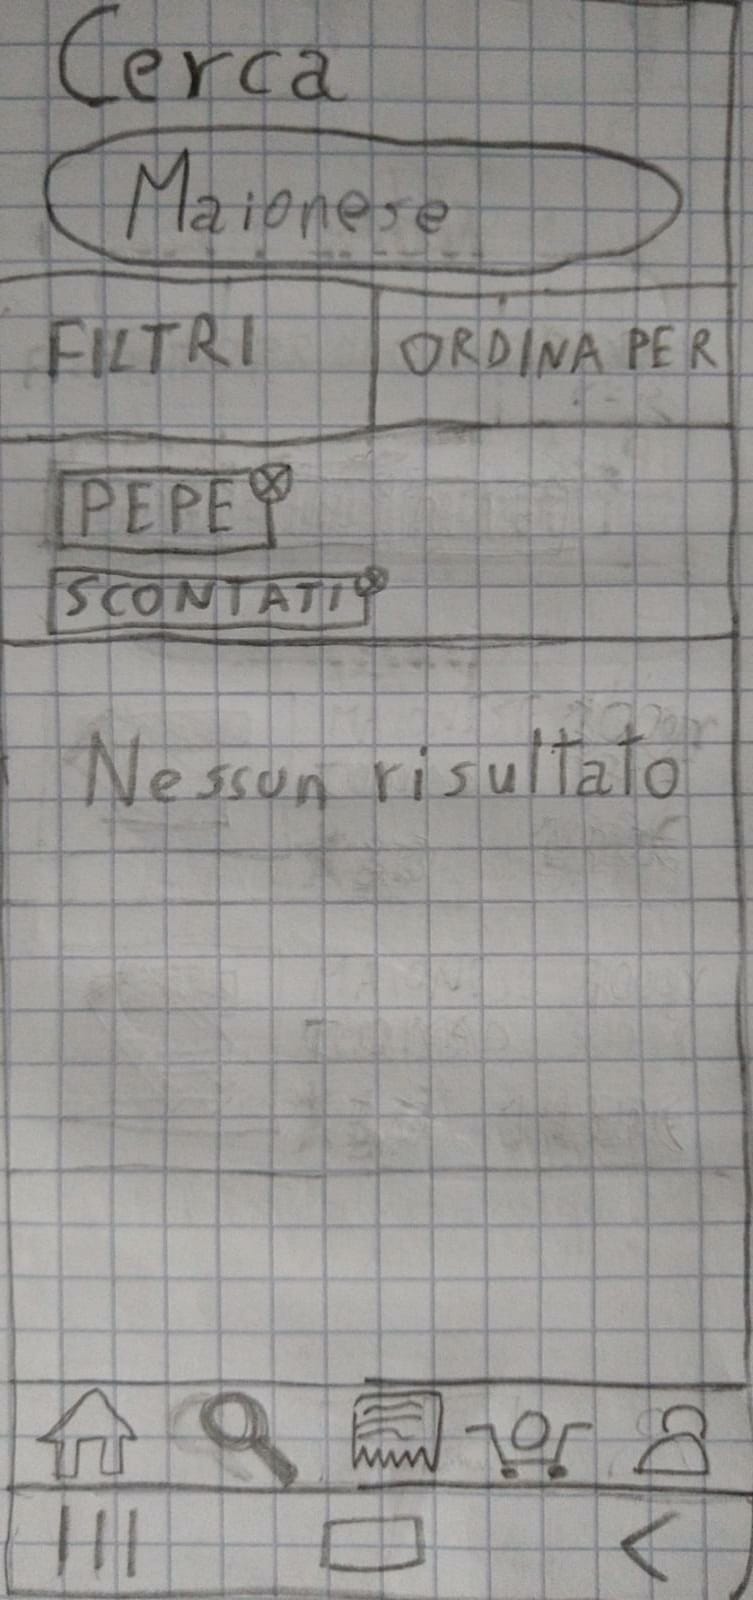 Cerca
Maionese
FILTRI ORDINA PER
PEPE
SCONTATI
Nessun risultato